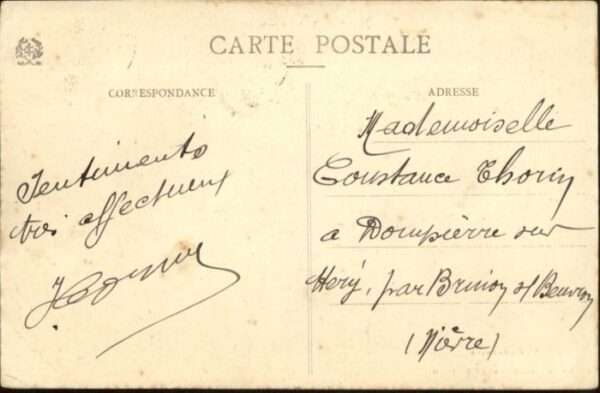 CARTE POSTALE
CORRESPONDANCE
ADRESSE
Sentiments
très affectueux
Mademoiselle
Constance Thorin
a Dompierre sur
Héry, par Brinon s/ Beuvron
(Nièvre)